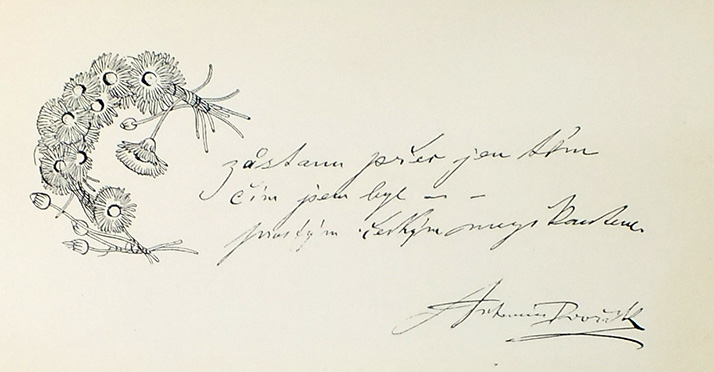 zůstanu přec jen tím
čím jsem byl — –
prostým českým muzikantem.
Antonín Dvořák